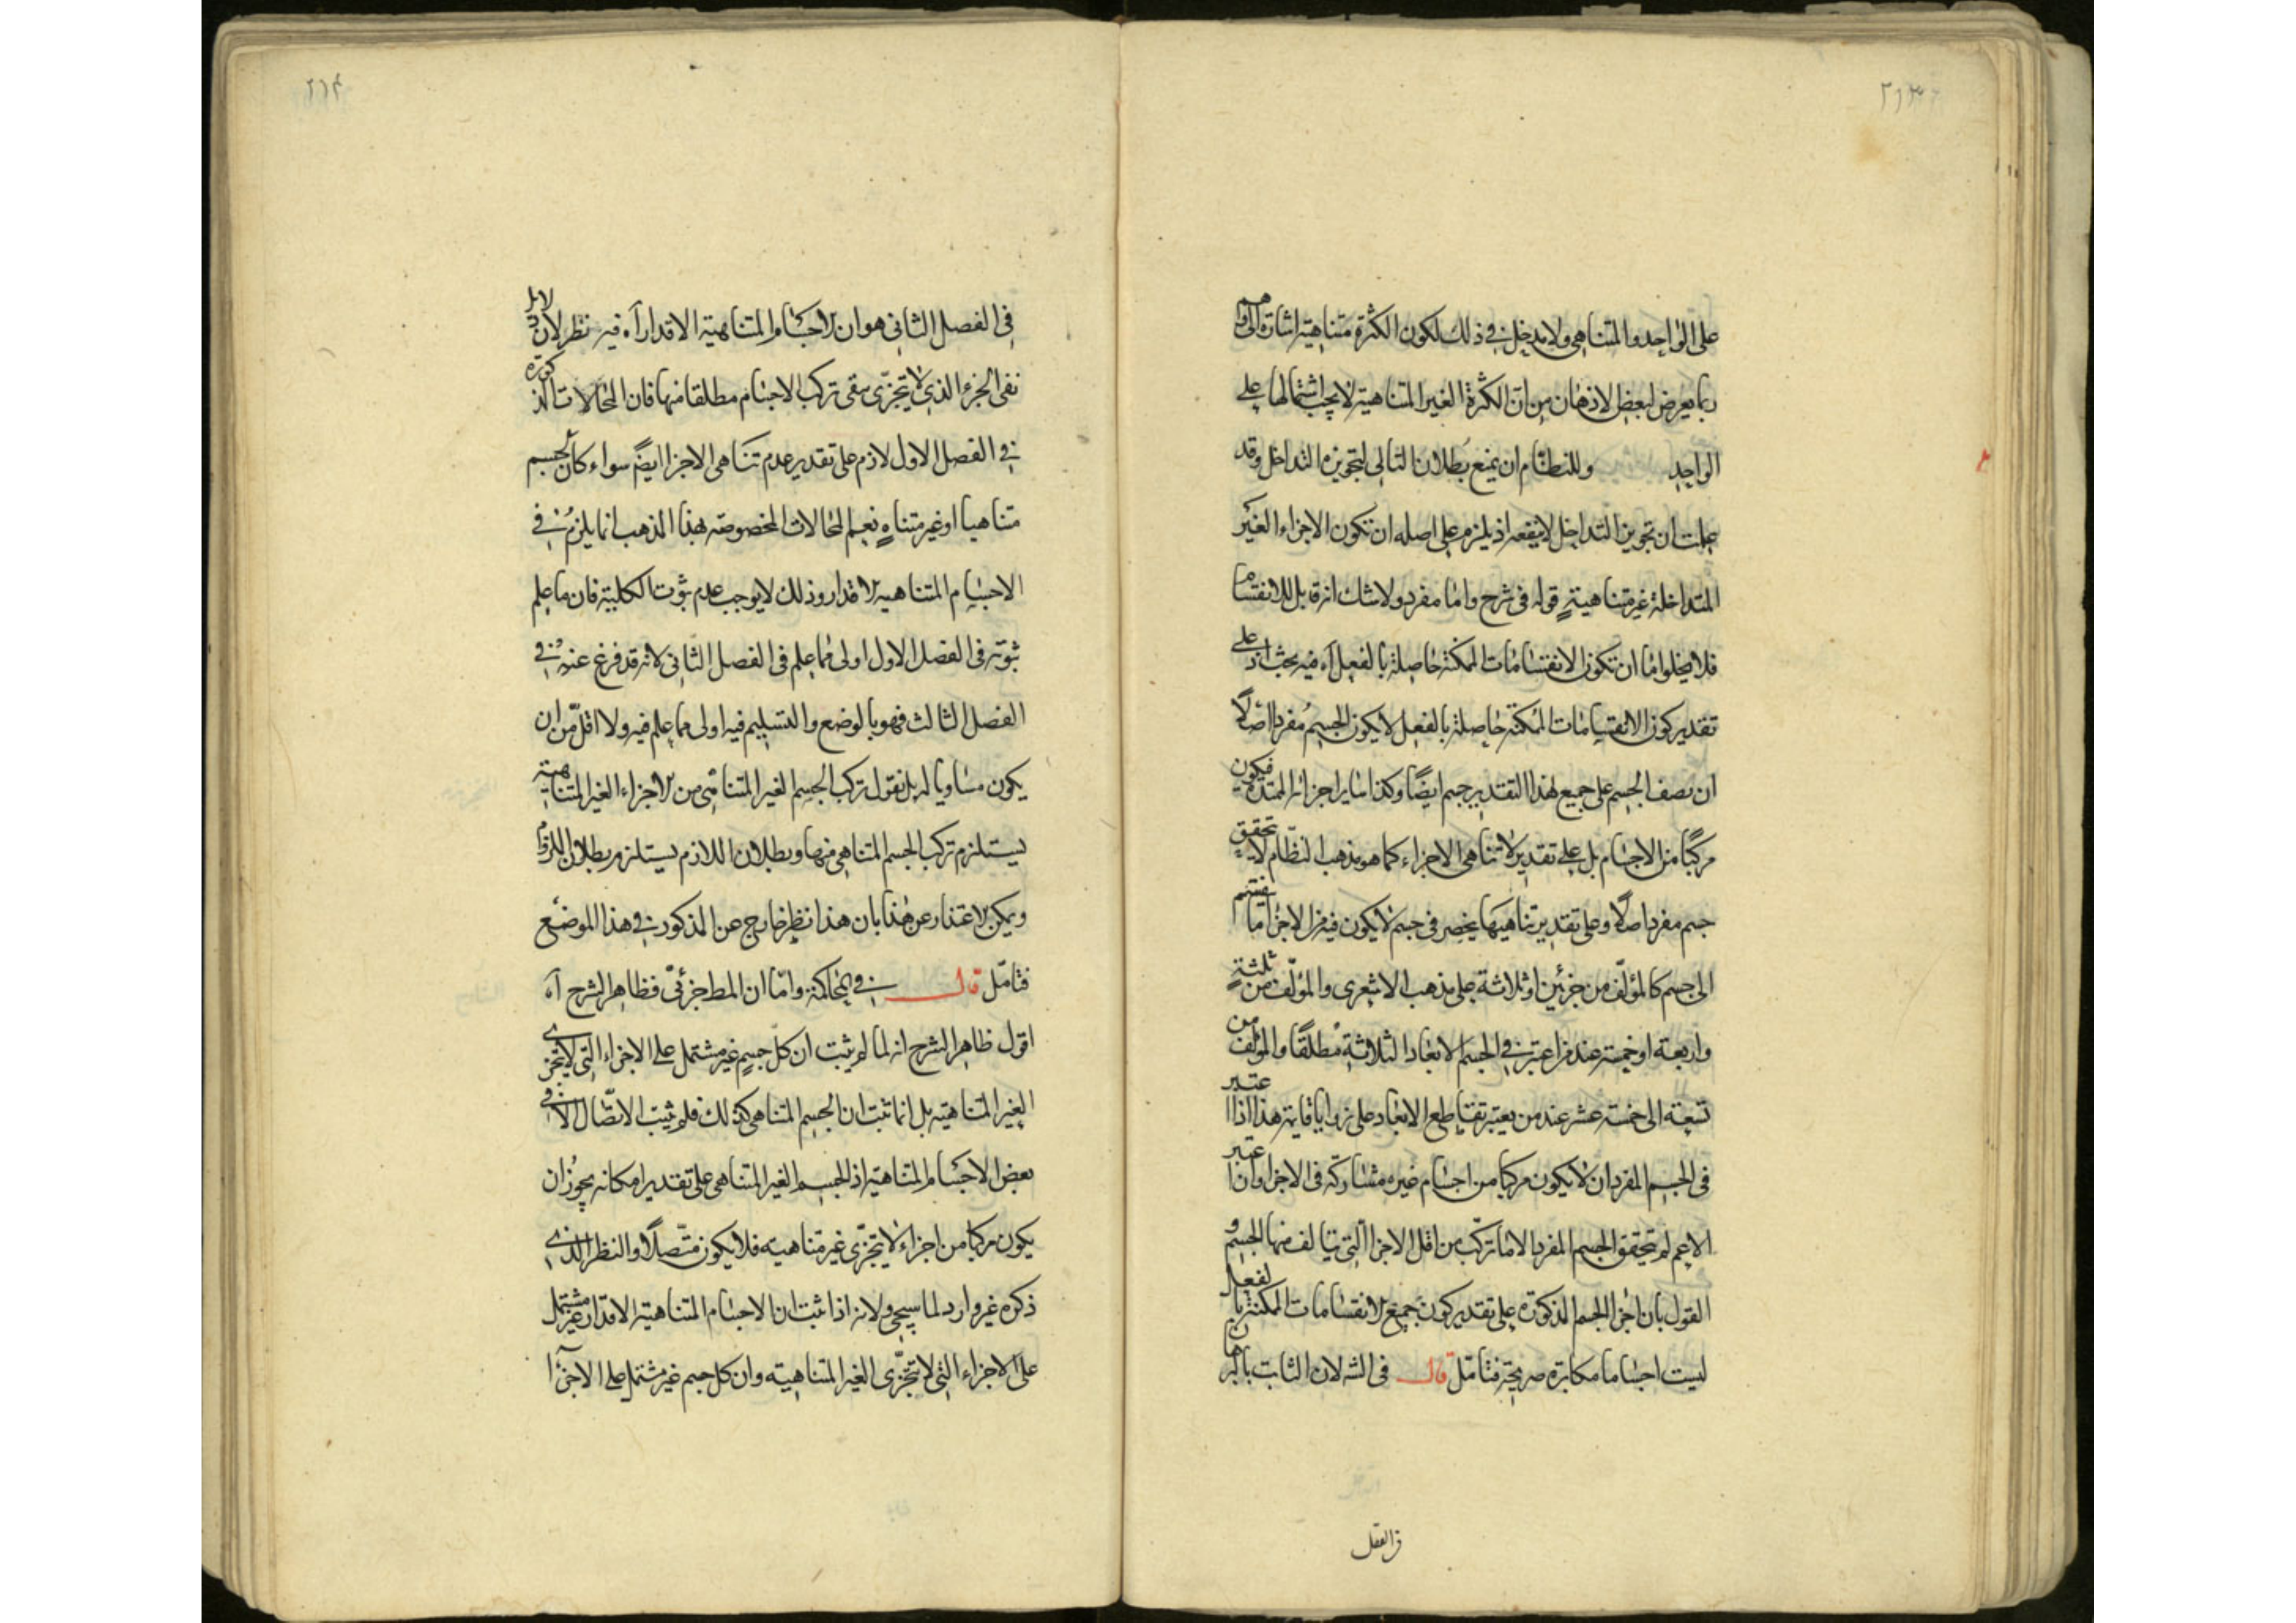 ٢١٣
على الواحد والمتناهى ولا مدخل فى ذلك لكون الكثرة متناهية اشارة الى وهم
ربما يعرض لبعض الاذهان من ان الكثرة الغير المتناهية لا يجب اشتمالها على
الواحد وللنظام ان يمنع بطلان التالى لتجويزه التداخل وقد
علمت ان تجويز التداخل لا ينفعه اذ يلزم على اصله ان تكون الاجزاء الغير
المتداخلة غير متناهية قوله فى شرح واما مفرد ولا شك انه قابل للانقسام
فلا يخلوا ما ان تكون الانقسامات الممكنة حاصلة بالفعل آه فيه بحث اذ على
تقدير كون الانقسامات الممكنة حاصلة بالفعل لا يكون الجسم مفردا اصلاً
ان نصف الجسم على جميع هذا التقدير جسم ايضًا وكذا سائر اجزائه الممتدة فيكون
مركبًا من الاجسام بل على تقدير لا تناهى الاجزاء كما هو مذهب النظّام لا يتحقق
جسم مفرد اصلًا وعلى تقدير تناهيها ينحصر فى جسم لا يكون فيه من الاجزا ما ينقسم
الى جسم كالمؤلّف من جزئين او ثلاثة على مذهب الاشعرى والمؤلّف من ثلثةٍ
واربعة او خمسة عند من اعتبر فى الجسم الابعاد الثلاثة مطلقًا والمؤلف من
تسعة الى خمسة عشر عند من يعتبر تقاطع الابعاد على زوايا قايمة هذا اذا اعتبر
فى الجسم المفرد ان لا يكون مركبا من اجسام غيره مشاركة فى الاجزا وان اعتبر
الاعم لم يتحقق الجسم المفرد الا ما تركّب من اقل الاجزا التى يتالف منها الجسم و
القول بان اجزا الجسم المذكورة على تقدير كون جميع الانقسامات الممكنة بالفعل
ليست اجساما مكابرة صريحة فتامّل قال فى الشه لان الثابت بالبرهان
فى الفصل
٢١٤
فى الفصل الثانى هو ان الاجسام المتناهية الاقدار آه فيه نظر لان دلايل
نفى الجزء الذى لا يتجزّى ينفى تركب الاجسام مطلقا منها فان المحالات المذكورة
فى الفصل الاول لازم على تقدير عدم تناهى الاجزا ايضً سواء كان الجسم
متناهيا او غير متناهٍ نعم المحالات المخصوصة بهذا المذهب انما يلزم فى
الاجسام المتناهية الاقدار وذلك لا يوجب عدم ثبوت الكلية فان ما علم
ثبوته فى الفصل الاول اولى مما علم فى الفصل الثانى لانه قد فرغ عنه فى
الفصل الثالث فهو بالوضع والتسليم فيه اولى مما علم فيه ولا اقلّ من ان
يكون مساويا له بل نقول تركب الجسم الغير المتناهى من الاجزاء الغير المتناهية
يستلزم تركب الجسم المتناهى منها وبطلان اللازم يستلزم بطلان الملزوم
ويمكن الاعتذار عن هذا بان هذا نظر خارج عن المذكور فى هذا الموضع
فتامّل قال فى المحاكمة وامّا ان المط جزئىّ فظاهر الشرح آه
اقول ظاهر الشرح انه لما لم يثبت ان كلّ جسمٍ غير مشتمل على الاجزاء التى لا يتجزى
الغير المتناهية بل انما ثبت ان الجسم المتناهى كذلك فلم يثبت الاتّصال الا فى
بعض الاجسام المتناهية اذ الجسم الغير المتناهى على تقدير امكانه يجوز ان
يكون مركبا من اجزاء لا يتجزّى غير متناهية فلا يكون متّصلًا والنظر الذى
ذكره غير وارد لما سيجئ ولانه اذا ثبت ان الاجسام المتناهية الاقدار غير مشتمل
على الاجزاء التى لا تتجزّى الغير المتناهية وان كل جسم غير مشتمل على الاجزآ